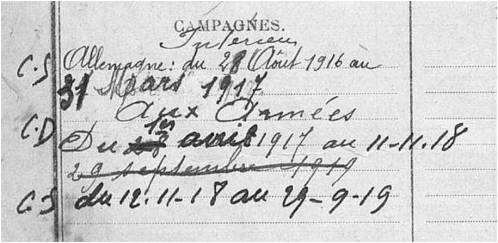 CAMPAGNES.
Intérieur
C.S Allemagne: du 28 Août 1916 au
31 Mars 1917
aux Armées
C.D Du 1er avril 1917 au 11-11.18
29 septembre 1919
C.S du 12.11-18 au 29-9-19